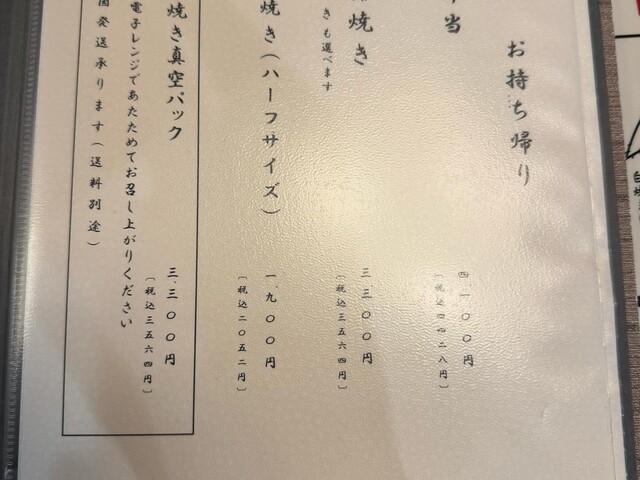 お持ち帰り
当
四、一〇〇円
〔税込四四二八円〕
焼き
きも選べます
三、三〇〇円
〔税込三五六四円〕
焼き(ハーフサイズ)
一、九〇〇円
〔税込二〇五二円〕
焼き真空パック
電子レンジであたためてお召し上がりください
三、三〇〇円
〔税込三五六四円〕
発送承ります(送料別途)